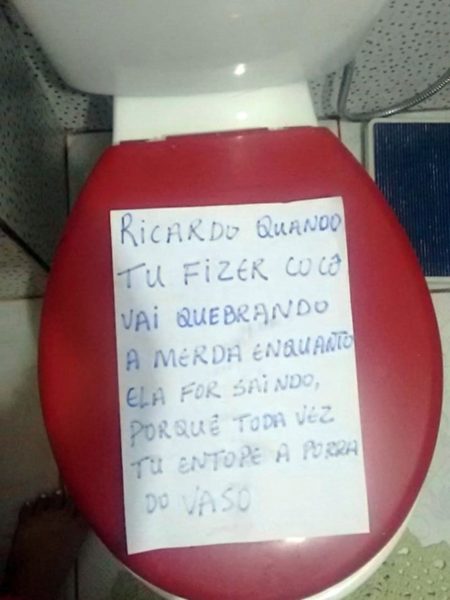 RICARDO QUANDO
TU FIZER COCÔ
VAI QUEBRANDO
A MERDA ENQUANTO
ELA FOR SAINDO,
PORQUÊ TODA VEZ
TU ENTOPE A PORRA
DO VASO